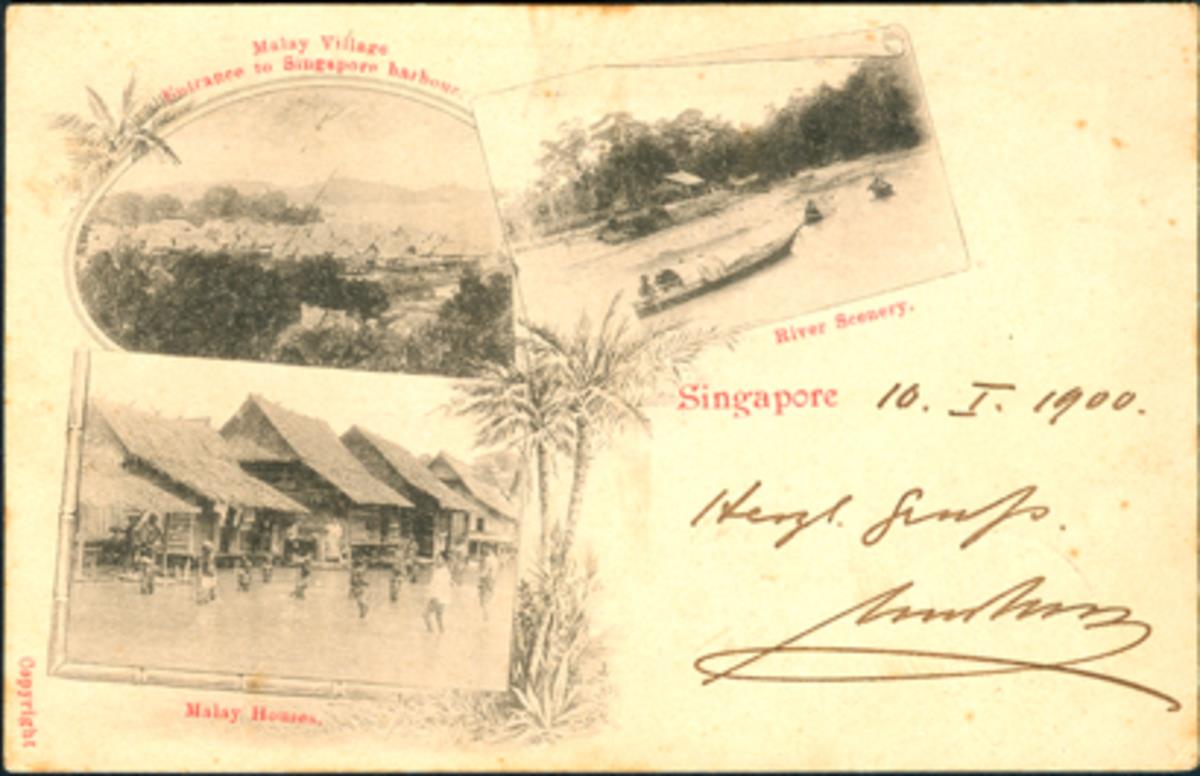 Malay Village
Entrance to Singapore harbour.
River Scenery.
Singapore 10. I. 1900.
Herzl. Gruß.
Malay Houses.
Copyright